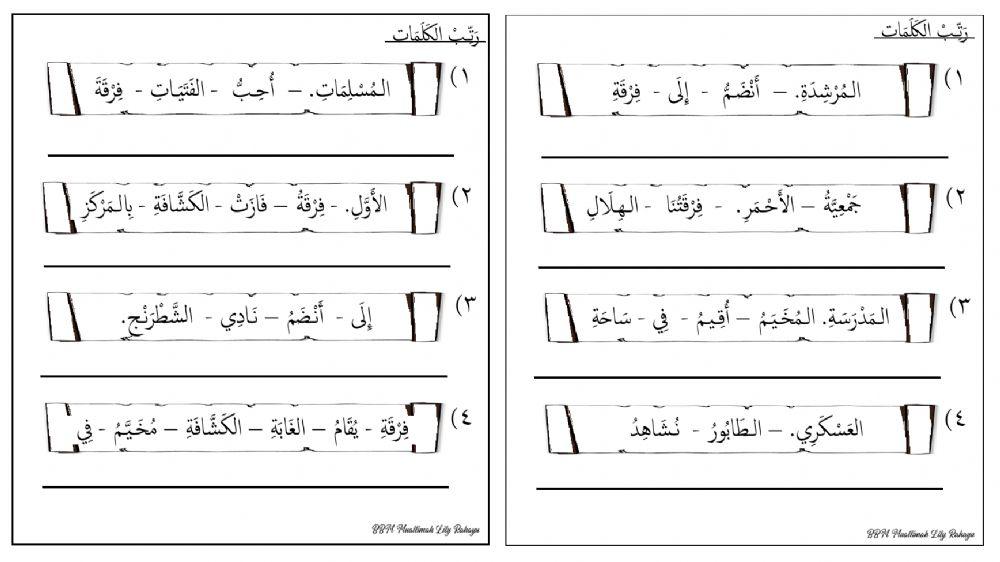 رَتِّبْ الكَلَمَات
١) المُسْلِمَاتِ. – أُحِبُّ - الفَتَيَاتِ - فِرْقَةَ
٢) الأَوَّلِ. - فِرْقَةُ – فَازَتْ - الكَشَّافَةِ - بِالمَرْكَزِ
٣) إِلَى - أَنْضَمُ – نَادِي - الشَّطْرَنْجِ.
٤) فِرْقَةِ - يُقَامُ – الغَابَةِ – الكَشَّافَةِ – مُخَيَّمُ - فِي
BBM Muallimah Lily Rahayu
رَتِّبْ الكَلَمَات
١) المُرْشِدَةِ. – أَنْضَمُّ - إِلَى - فِرْقَةِ
٢) جَمْعِيَّةُ – الأَحْمَرِ. - فِرْقَتُنَا - الهِلَالِ
٣) المَدْرَسَةِ. المُخَيَمُ – أُقِيمُ - فِي - سَاحَةِ
٤) العَسْكَرِي. – الطَابُورُ - نُشَاهِدُ
BBM Muallimah Lily Rahayu